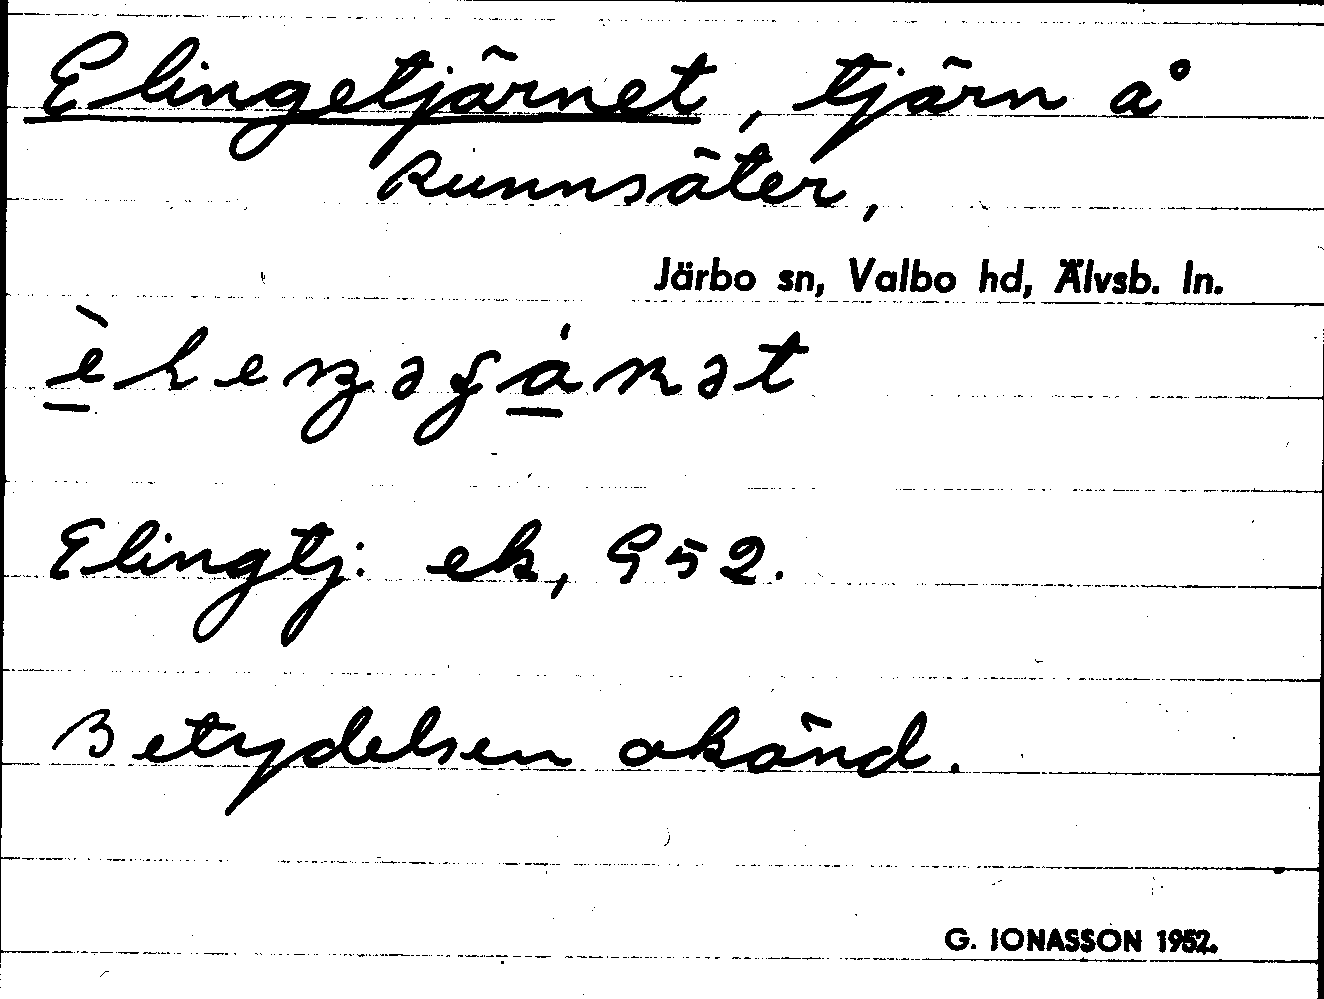 Elingetjärnet, tjärn å
Runnsäter,
Järbo sn, Valbo hd, Älvsb. ln.
Elingtj: ek, 952.
Betydelsen okänd.
G. JONASSON 1952.